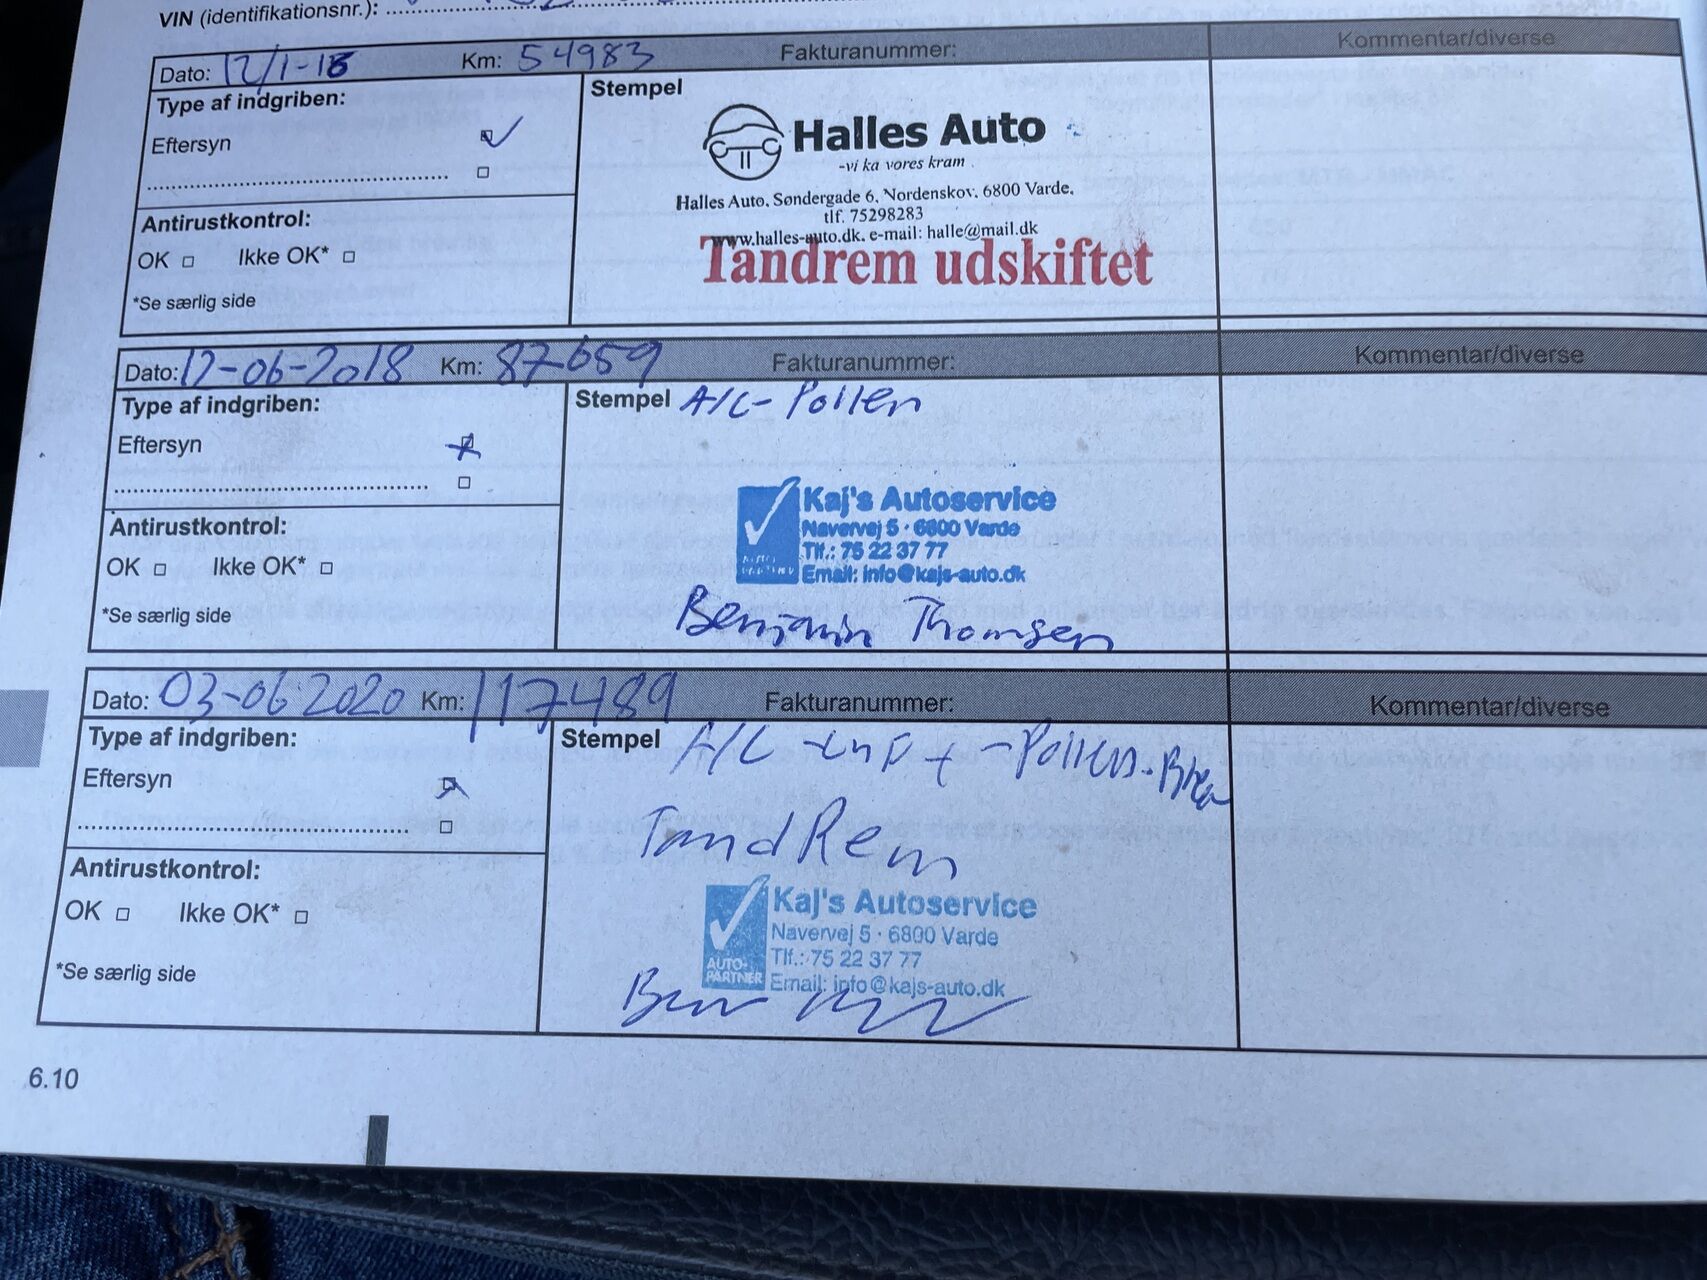 VIN (identifikationsnr.):
Dato: 12/1-16 Km: 54983 Fakturanummer: Kommentar/diverse
Type af indgriben:
Stempel
Eftersyn
Halles Auto
-vi ka vores kram
Halles Auto. Søndergade 6. Nordenskov. 6800 Varde.
tlf. 75298283
www.halles-auto.dk. e-mail: halle@mail.dk
Tandrem udskiftet
Antirustkontrol:
OK Ikke OK*
*Se særlig side
Dato: 12-06-2018 Km: 87659 Fakturanummer: Kommentar/diverse
Type af indgriben:
Stempel A/C- Pollen
Eftersyn
Kaj's Autoservice
Navervej 5 · 6800 Varde
Tlf.: 75 22 37 77
Email: info@kajs-auto.dk
Benjamin Thomsen
Antirustkontrol:
OK Ikke OK*
*Se særlig side
Dato: 03-06 2020 Km: 117489 Fakturanummer: Kommentar/diverse
Type af indgriben:
Stempel A/C -Luft -Pollen-
TandRem
Eftersyn
Kaj's Autoservice
Navervej 5 · 6800 Varde
Tlf.: 75 22 37 77
Email: info@kajs-auto.dk
AUTO-
PARTNER
Antirustkontrol:
OK Ikke OK*
*Se særlig side
6.10